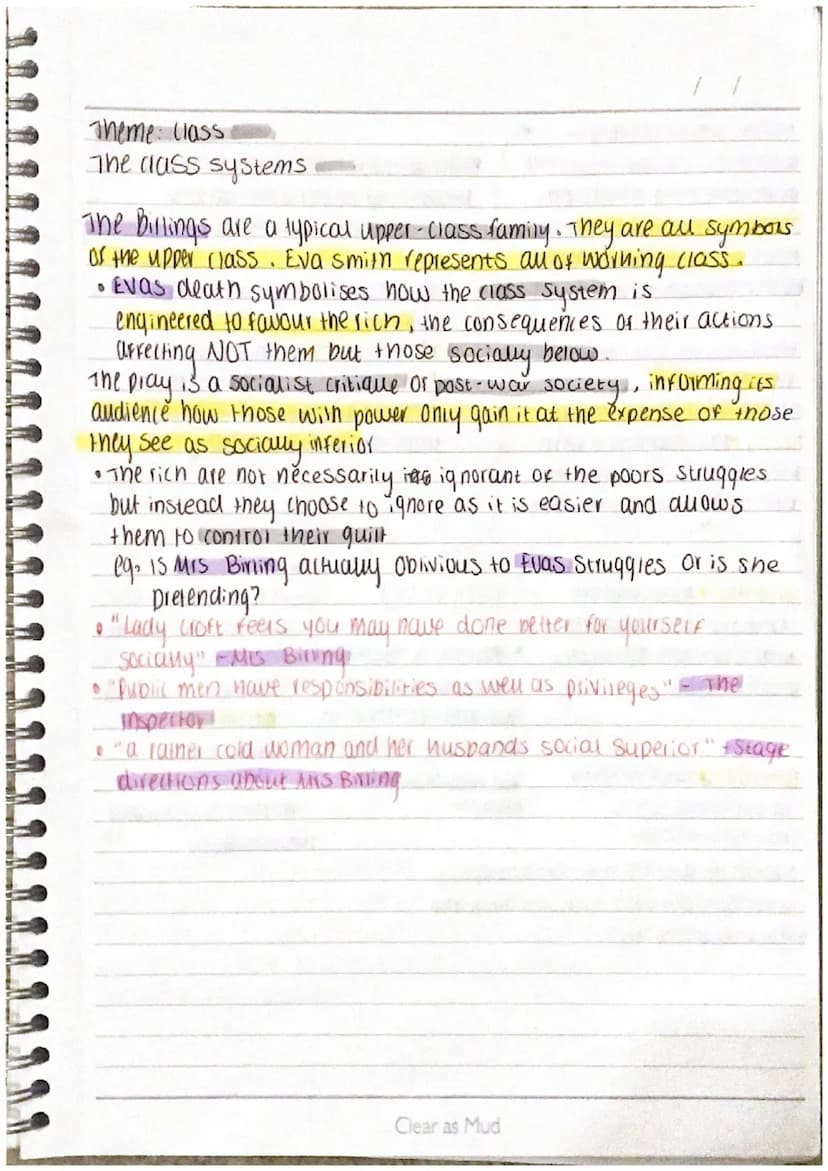 / /
Theme: Class
The class systems
The Birlings are a typical upper-class family. They are all symbols
of the upper class. Eva smith represents all of working class.
• Evas death symbolises how the class system is
engineered to favour the rich, the consequences of their actions
affecting NOT them but those socially below.
The play is a socialist critique of post-war society, informing its
audience how those with power only gain it at the expense of those
they see as socially inferior
• The rich are not necessarily ignorant of the poors struggles
but instead they choose to ignore as it is easier and allows
them to control their guilt
eg. is Mrs Birling actually oblivious to Evas struggles or is she
pretending?
• "Lady Croft feels you may have done better for yourself
socially" - Mrs Birling
• "Public men have responsibilities as well as privileges" - The
inspector
• "a rather cold woman and her husbands social superior" - Stage
directions about Mrs Birling
Clear as Mud